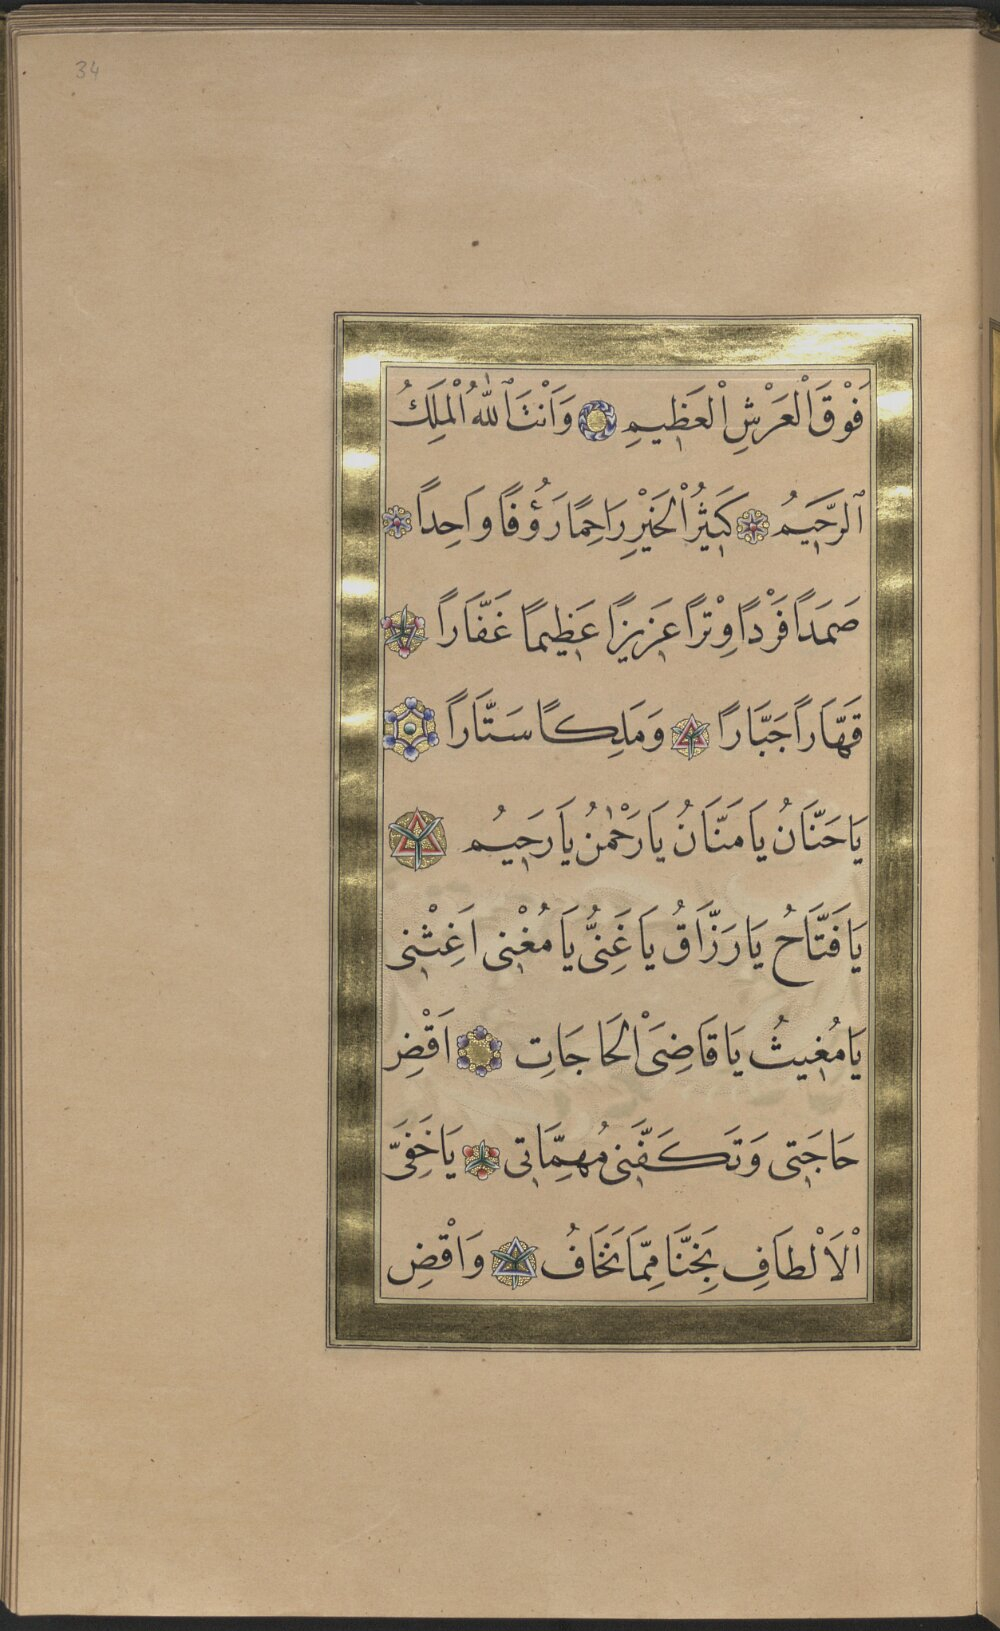 34
فَوْقَ الْعَرْشِ الْعَظِيمِ وَاَنْتَ اللّٰهُ الْمَلِكُ
الرَّحِيمُ كَثِيرُ الْخَيْرِ رَاحِمًا رَؤُفًا وَاحِدًا
صَمَدًا فَرْدًا وِتْرًا عَزِيزًا عَظِيمًا غَفَّارًا
قَهَّارًا جَبَّارًا وَمَلِكًا سَتَّارًا
يَاحَنَّانُ يَامَنَّانُ يَارَحْمٰنُ يَارَحِيمُ
يَافَتَّاحُ يَارَزَّاقُ يَاغَنِىُّ يَامُغْنِى اَغِثْنِى
يَامُغِيثُ يَاقَاضِىَ الْحَاجَاتِ اَقْضِ
حَاجَتِى وَتَكَفَّنِى مُهِمَّاتِى يَاخَفِىَّ
اْلاَلْطَافِ نَجِّنَا مِمَّا نَخَافُ وَاقْضِ